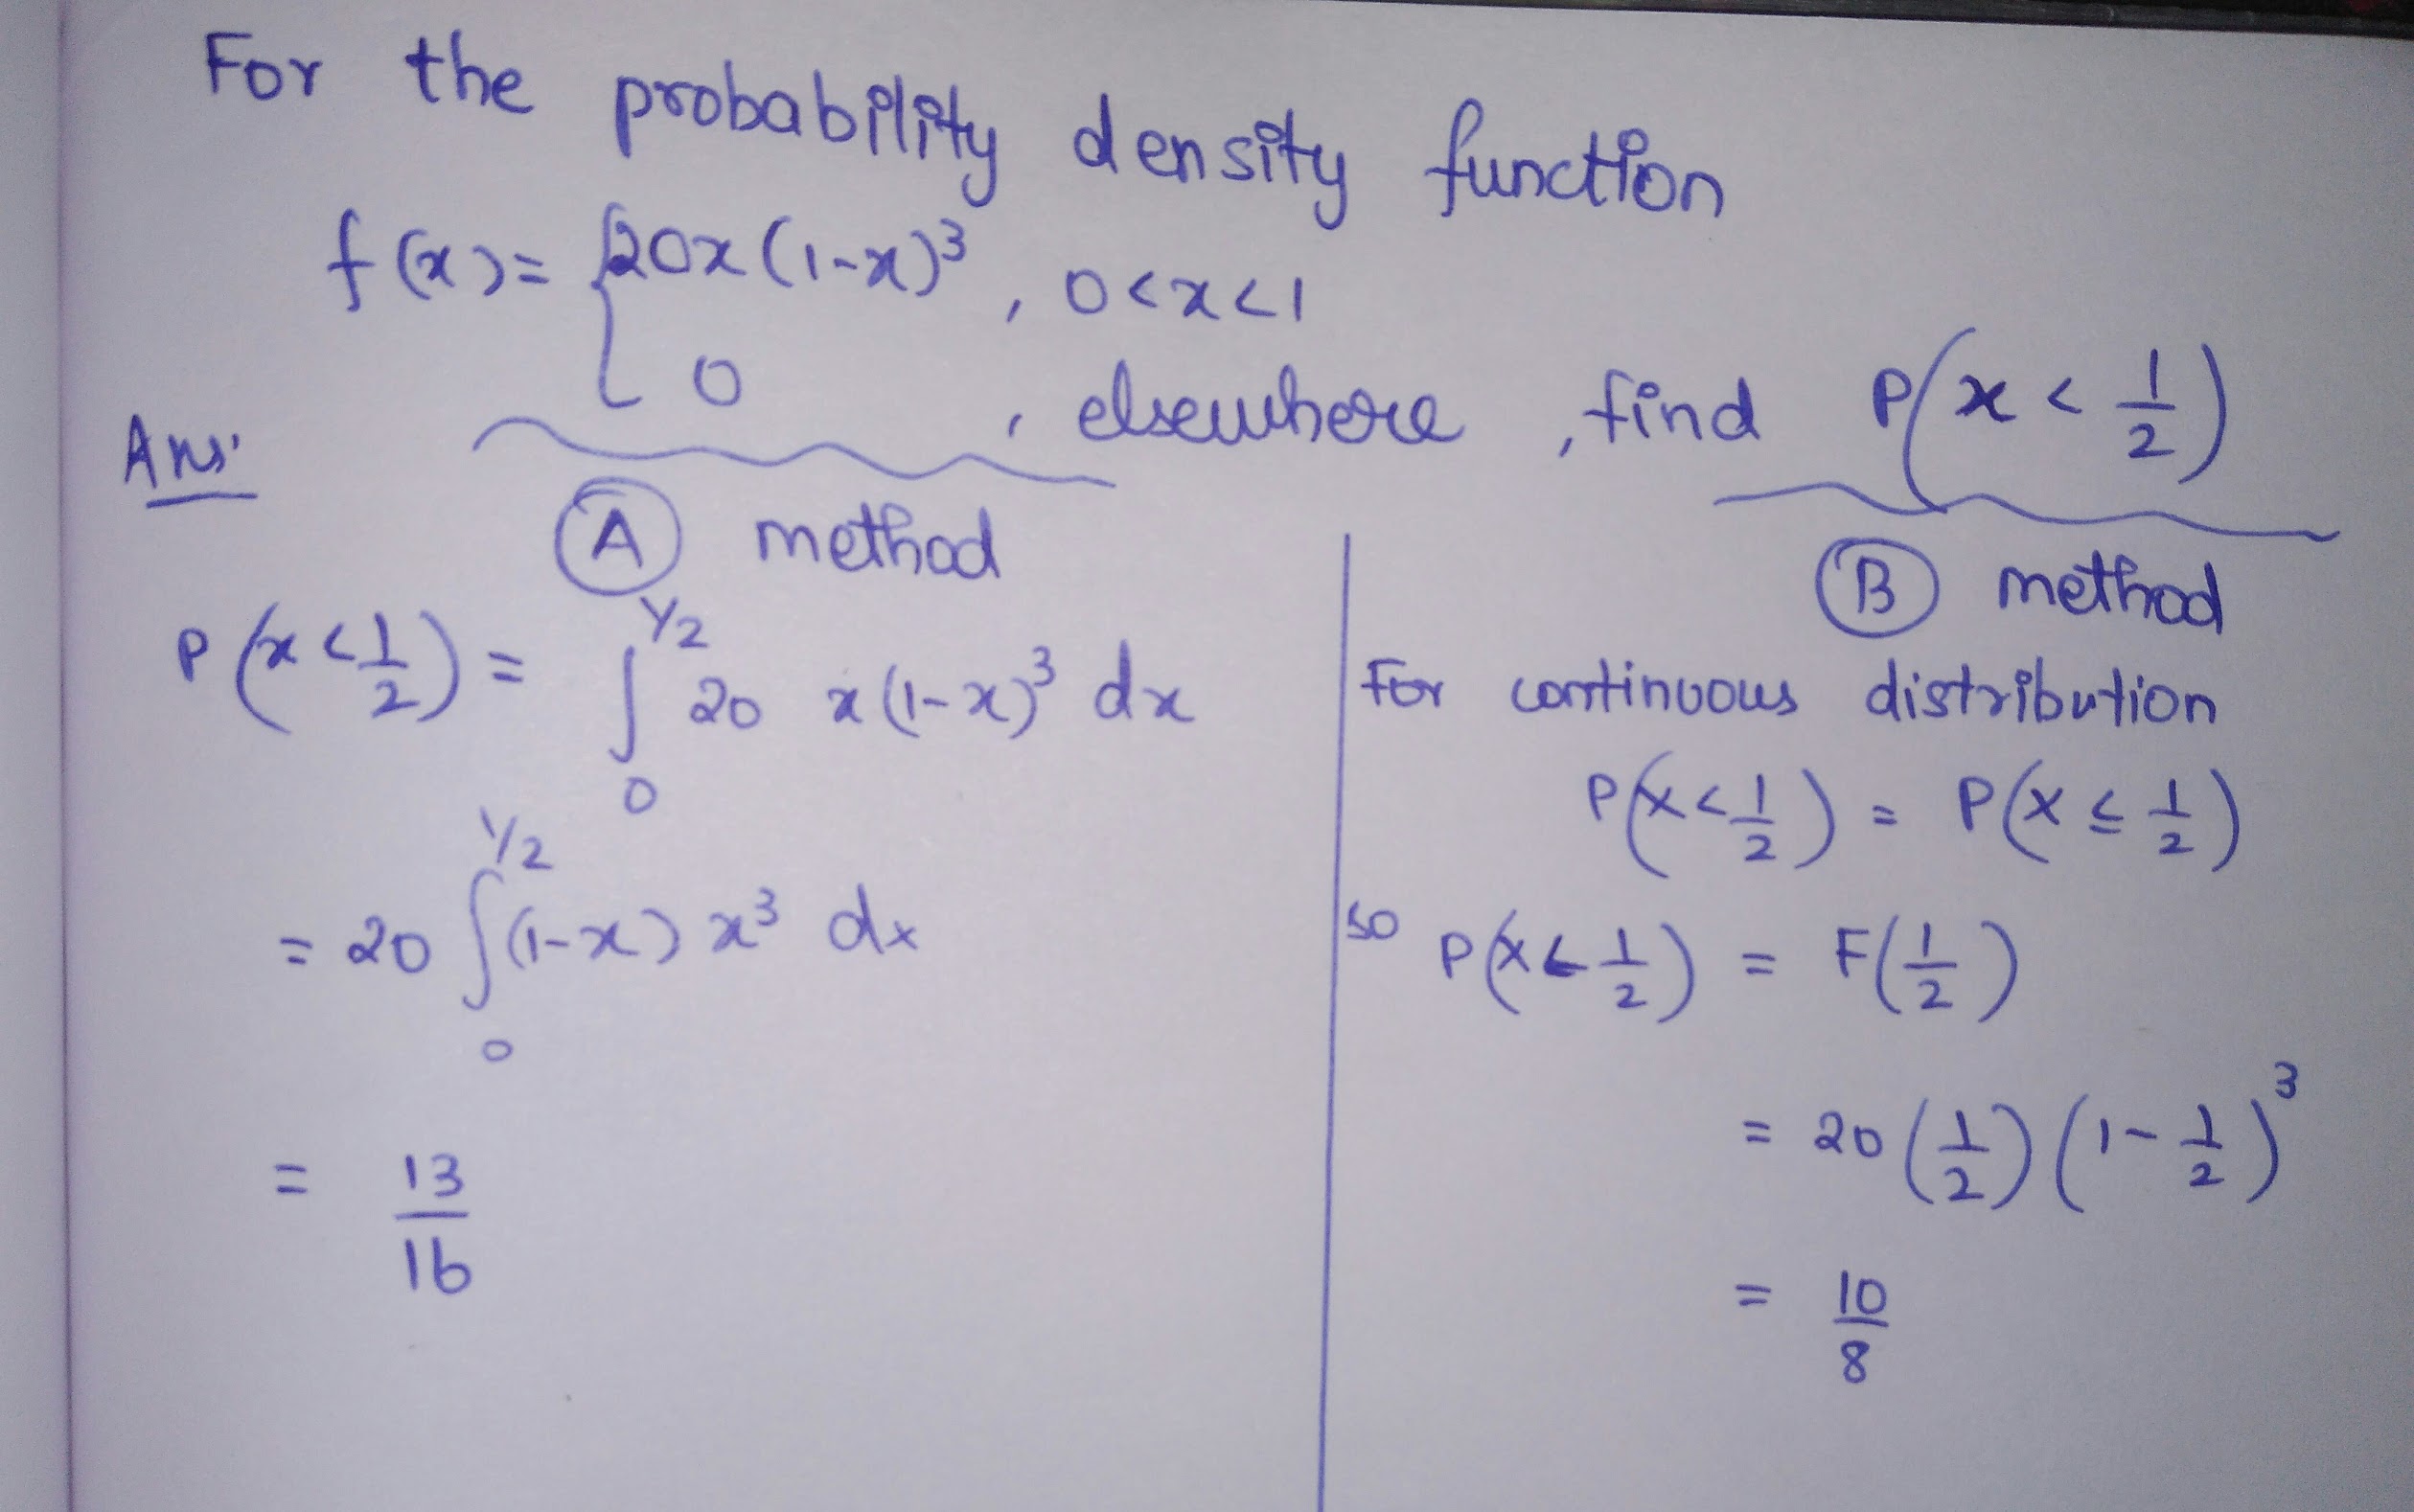 For the probability density function
f(x) = { 20x(1-x)³ , 0<x<1
0 , elsewhere , find P(x < 1/2)
Ans:
(A) method
P(x < 1/2) = ∫₀^{1/2} 20 x(1-x)³ dx
= 20 ∫₀^{1/2} (1-x) x³ dx
= 13/16
(B) method
For continuous distribution
P(X < 1/2) = P(X ≤ 1/2)
so P(X < 1/2) = F(1/2)
= 20 (1/2) (1 - 1/2)³
= 10/8